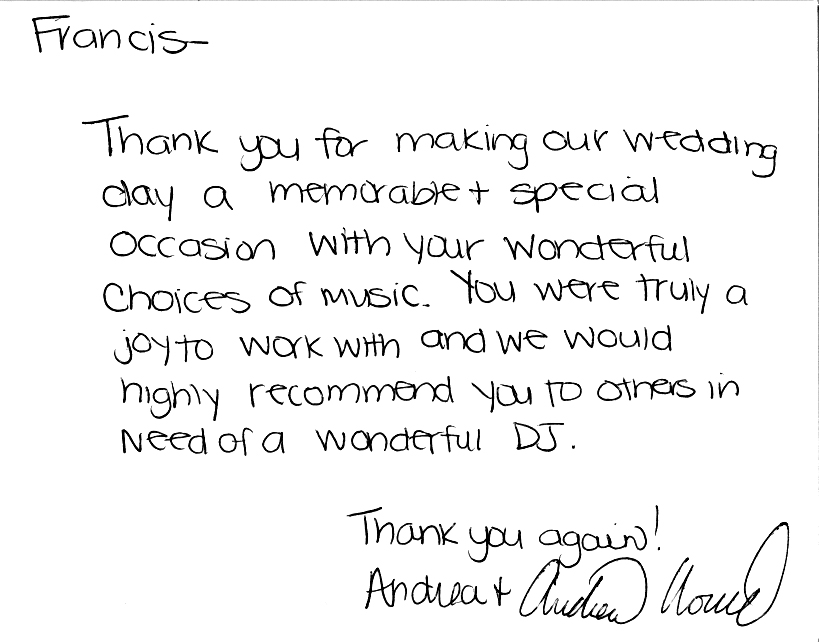 Francis-
Thank you for making our wedding
day a memorable + special
occasion with your wonderful
choices of music. You were truly a
joy to work with and we would
highly recommend you to others in
need of a wonderful DJ.
Thank you again!
Andrea + Andrew